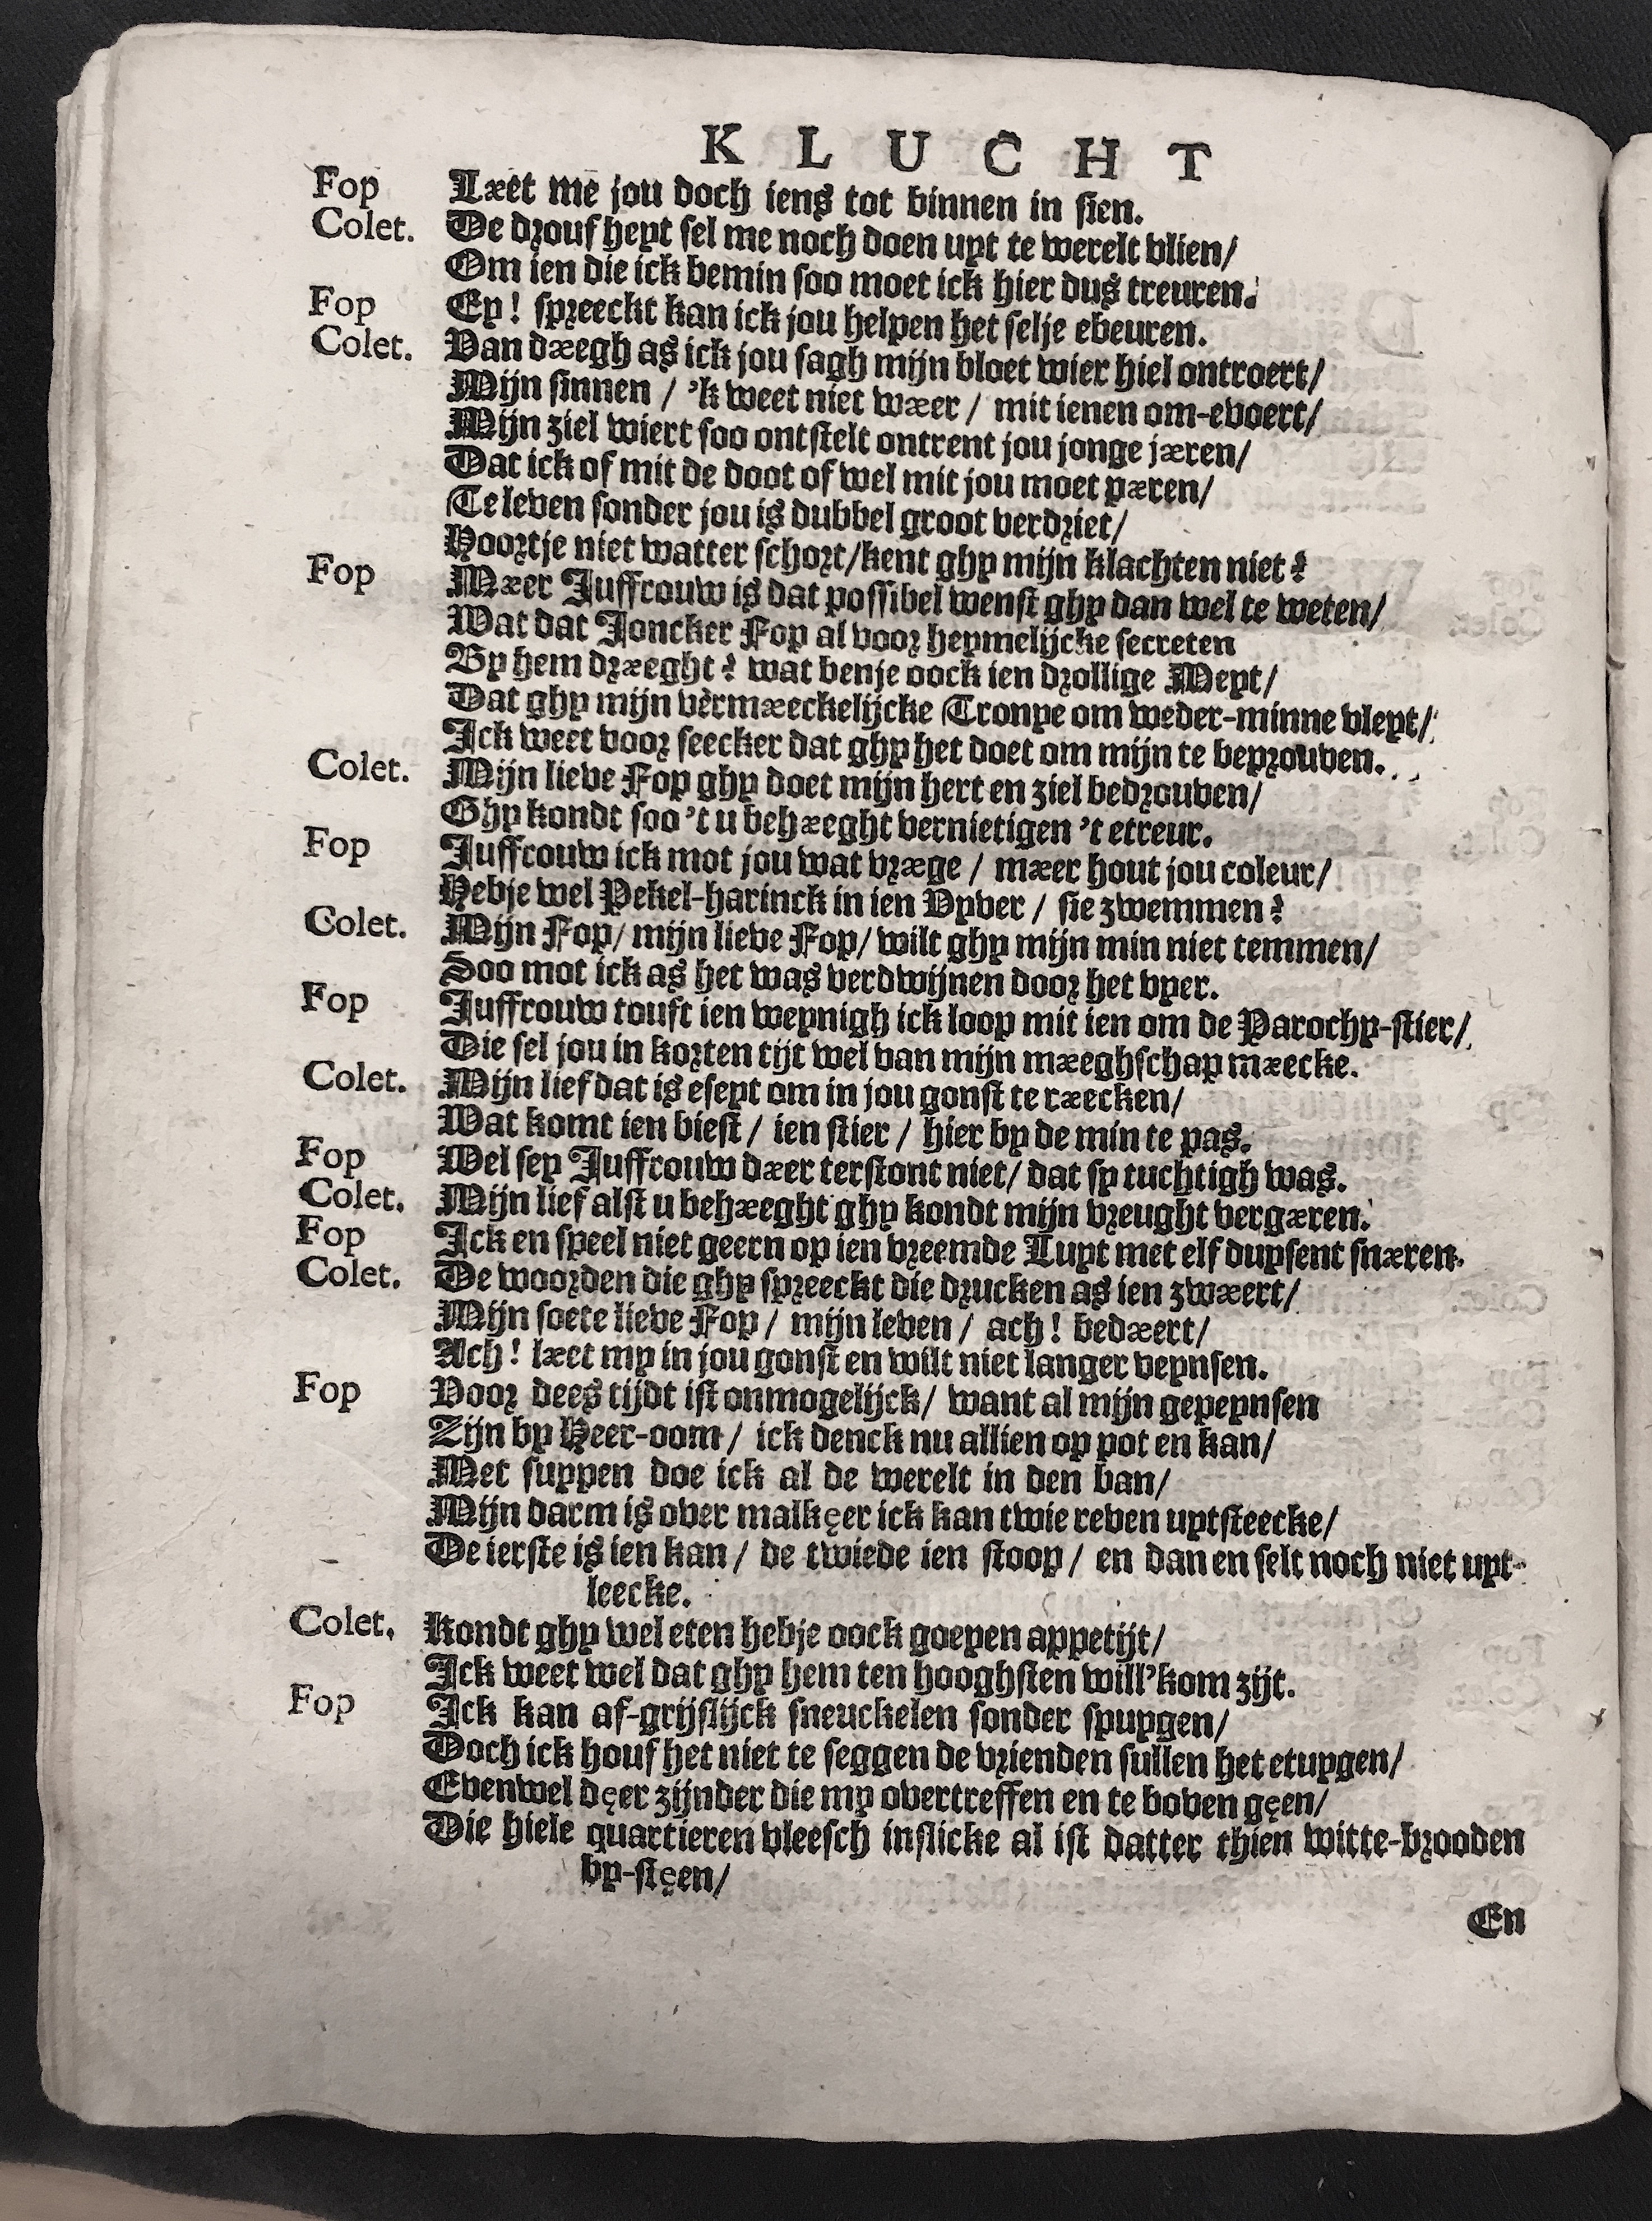 KLUCHT
Fop Læet me jou doch iens tot binnen in sien.
Colet. De drouf heyt sel me noch doen uyt te werelt vlien/
Om ien die ick bemin soo moet ick hier dus treuren.
Fop Ey! spreeckt kan ick jou helpen het selje ebeuren.
Colet. Van dæegh as ick jou sagh mijn bloet wier hiel ontroert/
Mijn sinnen / 'k weet niet wæer / mit ienen om-evoert/
Mijn ziel wiert soo ontstelt ontrent jou jonge jæren/
Dat ick of mit de doot of wel mit jou moet pæren/
Te leven sonder jou is dubbel groot verdriet/
Hoortje niet watter schort/kent ghy mijn klachten niet?
Fop Mæer Juffrouw is dat possibel wenst ghy dan wel te weten/
Wat dat Joncker Fop al voor heymelijcke secreten
By hem dræeght? wat benje oock ien drollige Meyt/
Dat ghy mijn vermæeckelijcke Tronye om weder-minne vleyt/
Ick weet voor seecker dat ghy het doet om mijn te beprouven.
Colet. Mijn lieve Fop ghy doet mijn hert en ziel bedrouven/
Ghy kondt soo 't u behæeght vernietigen 't etreur.
Fop Juffrouw ick mot jou wat vræge / mæer hout jou coleur/
Hebje wel Pekel-harinck in ien Vyver / sie zwemmen?
Colet. Mijn Fop/ mijn lieve Fop/ wilt ghy mijn min niet temmen/
Soo mot ick as het was verdwijnen door het vyer.
Fop Juffrouw touft ien weynigh ick loop mit ien om de Parochy-stier/
Die sel jou in korten tijt wel van mijn mæeghschap mæecke.
Colet. Mijn lief dat is eseyt om in jou gonst te ræecken/
Wat komt ien biest / ien stier / hier by de min te pas.
Fop Wel sey Juffrouw dæer terstont niet/ dat sy tuchtigh was.
Colet. Mijn lief alst u behæeght ghy kondt mijn vreught vergæren.
Fop Ick en speel niet geern op ien vreemde Luyt met elf duysent snæren.
Colet. De woorden die ghy spreeckt die drucken as ien zwæert/
Mijn soete lieve Fop / mijn leven / ach! bedæert/
Ach! læet my in jou gonst en wilt niet langer veynsen.
Fop Voor dees tijdt ist onmogelijck/ want al mijn gepeynsen
Zijn by Heer-oom / ick denck nu allien op pot en kan/
Met suypen doe ick al de werelt in den ban/
Mijn darm is over malkęer ick kan twie reven uytsteecke/
De ierste is ien kan / de twiede ien stoop / en dan en selt noch niet uyt-
leecke.
Colet. Kondt ghy wel eten hebje oock goeyen appetijt/
Ick weet wel dat ghy hem ten hooghsten will'kom zijt.
Fop Ick kan af-grijslijck sneuckelen sonder spuygen/
Doch ick houf het niet te seggen de vrienden sullen het etuygen/
Evenwel dęer zijnder die my overtreffen en te boven gęen/
Die hiele quartieren vleesch inslicke al ist datter thien witte-brooden
by-stęen/
En